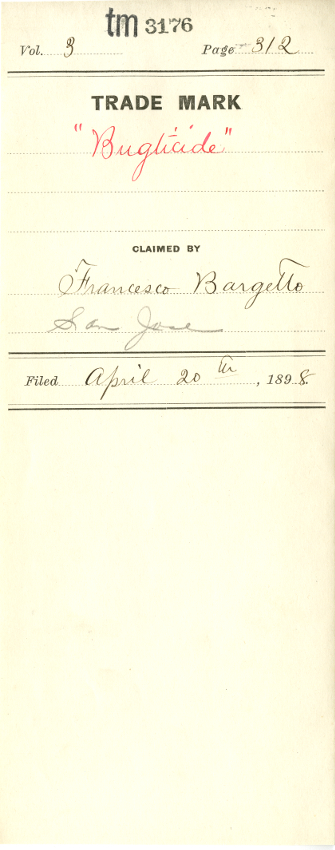 tm 3176
Vol. 3 Page 312
TRADE MARK
"Bugticide"
CLAIMED BY
Francesco Bargetto
San Jose
Filed April 20th, 1898.